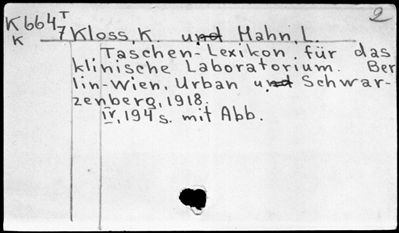 2
K664 T/7 Kloss, K. und Mahn, L.
K
Taschen-Lexikon für das
klinische Laboratorium. Ber
lin-Wien, Urban und Schwar-
zenberg, 1918.
IV, 194 s. mit Abb.